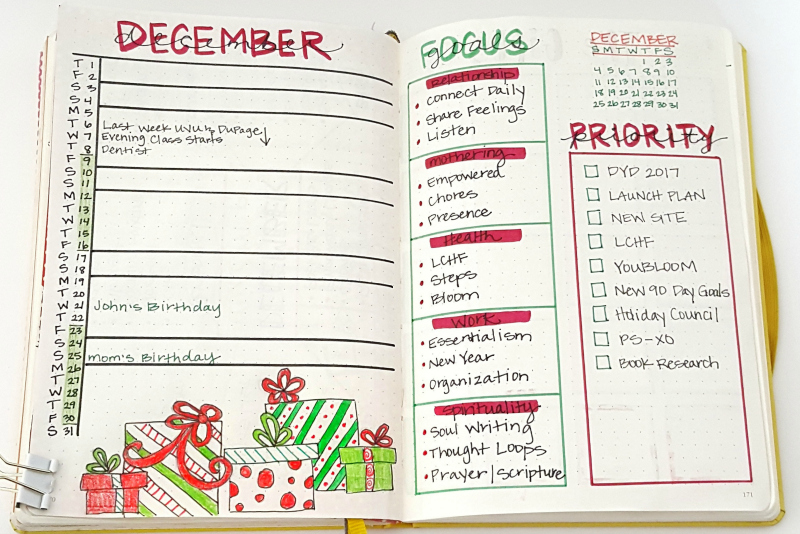 DECEMBER
december
T 1
F 2
S 3
S 4
M 5
T 6 Last Week UVU & DuPage
W 7 Evening Class Starts
T 8 Dentist
F 9
S 10
S 11
M 12
T 13
W 14
T 15
F 16
S 17
S 18
M 19
T 20
W 21 John's Birthday
T 22
F 23
S 24
S 25 mom's Birthday
M 26
T 27
W 28
T 29
F 30
S 31
FOCUS
goals
Relationship
Connect Daily
Share Feelings
Listen
mothering
Empowered
Chores
Presence
Health
LCHF
Steps
Bloom
Work
Essentialism
New Year
Organization
Spirituality
Soul Writing
Thought Loops
Prayer/Scripture
DECEMBER
S M T W T F S
1 2 3
4 5 6 7 8 9 10
11 12 13 14 15 16 17
18 19 20 21 22 23 24
25 26 27 28 29 30 31
PRIORITY
priority
DYD 2017
LAUNCH PLAN
NEW SITE
LCHF
YOUBLOOM
New 90 Day Goals
Holiday Council
PS-XO
Book Research
171